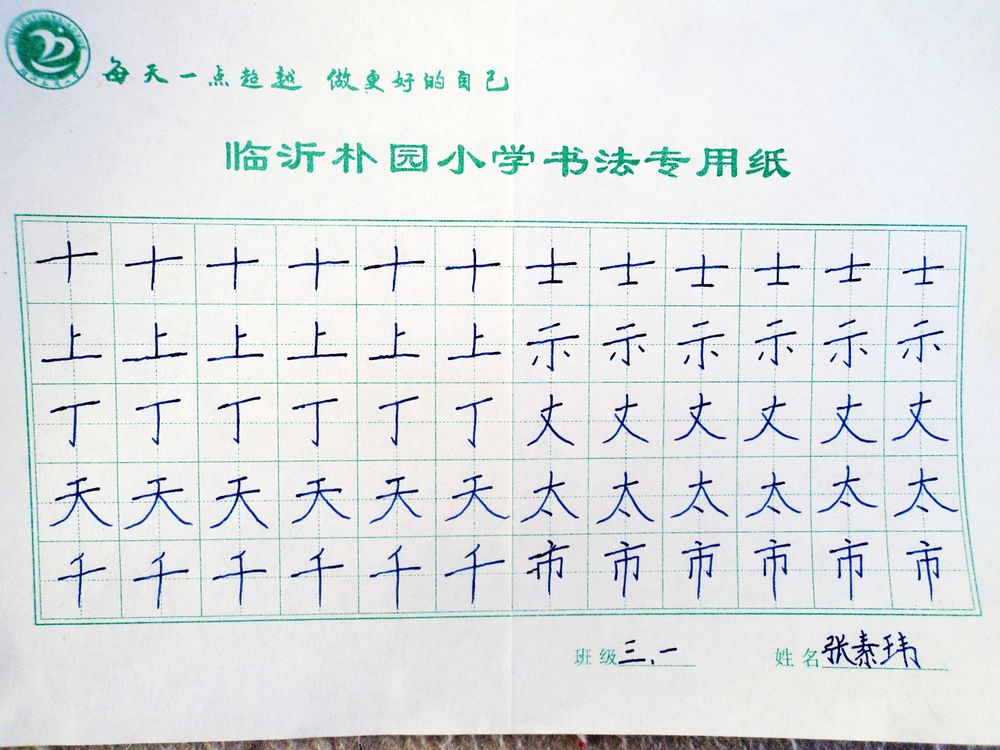 每天一点超越 做更好的自己
临沂朴园小学书法专用纸
十十十十十十士士士士士士
上上上上上上示示示示示示
丁丁丁丁丁丁丈丈丈丈丈丈
天天天天天天太太太太太太
千千千千千千市市市市市市
班级三.一 姓名张秦玮